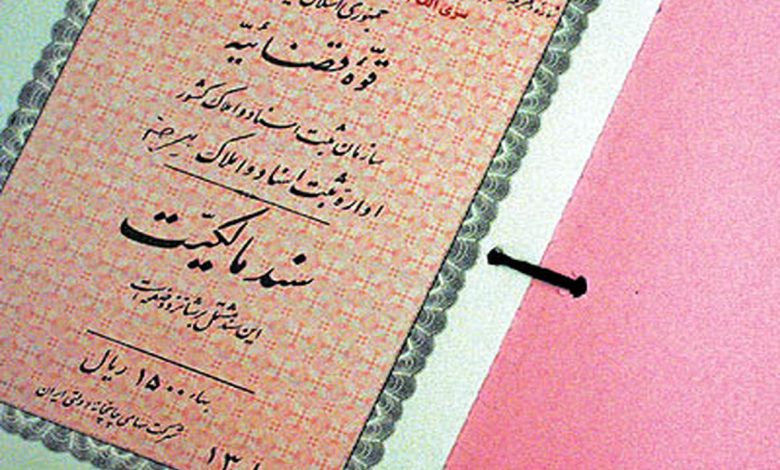 جمهوری اسلامی
قوّه قضائیّه
سازمان ثبت اسناد و املاک کشور
اداره ثبت اسناد و املاک
سند مالکیّت
این سند مشتمل بر شانزده صفحه است
بهاء ۱۵۰۰ ریال
شرکت سهامی چاپخانه دولتی ایران